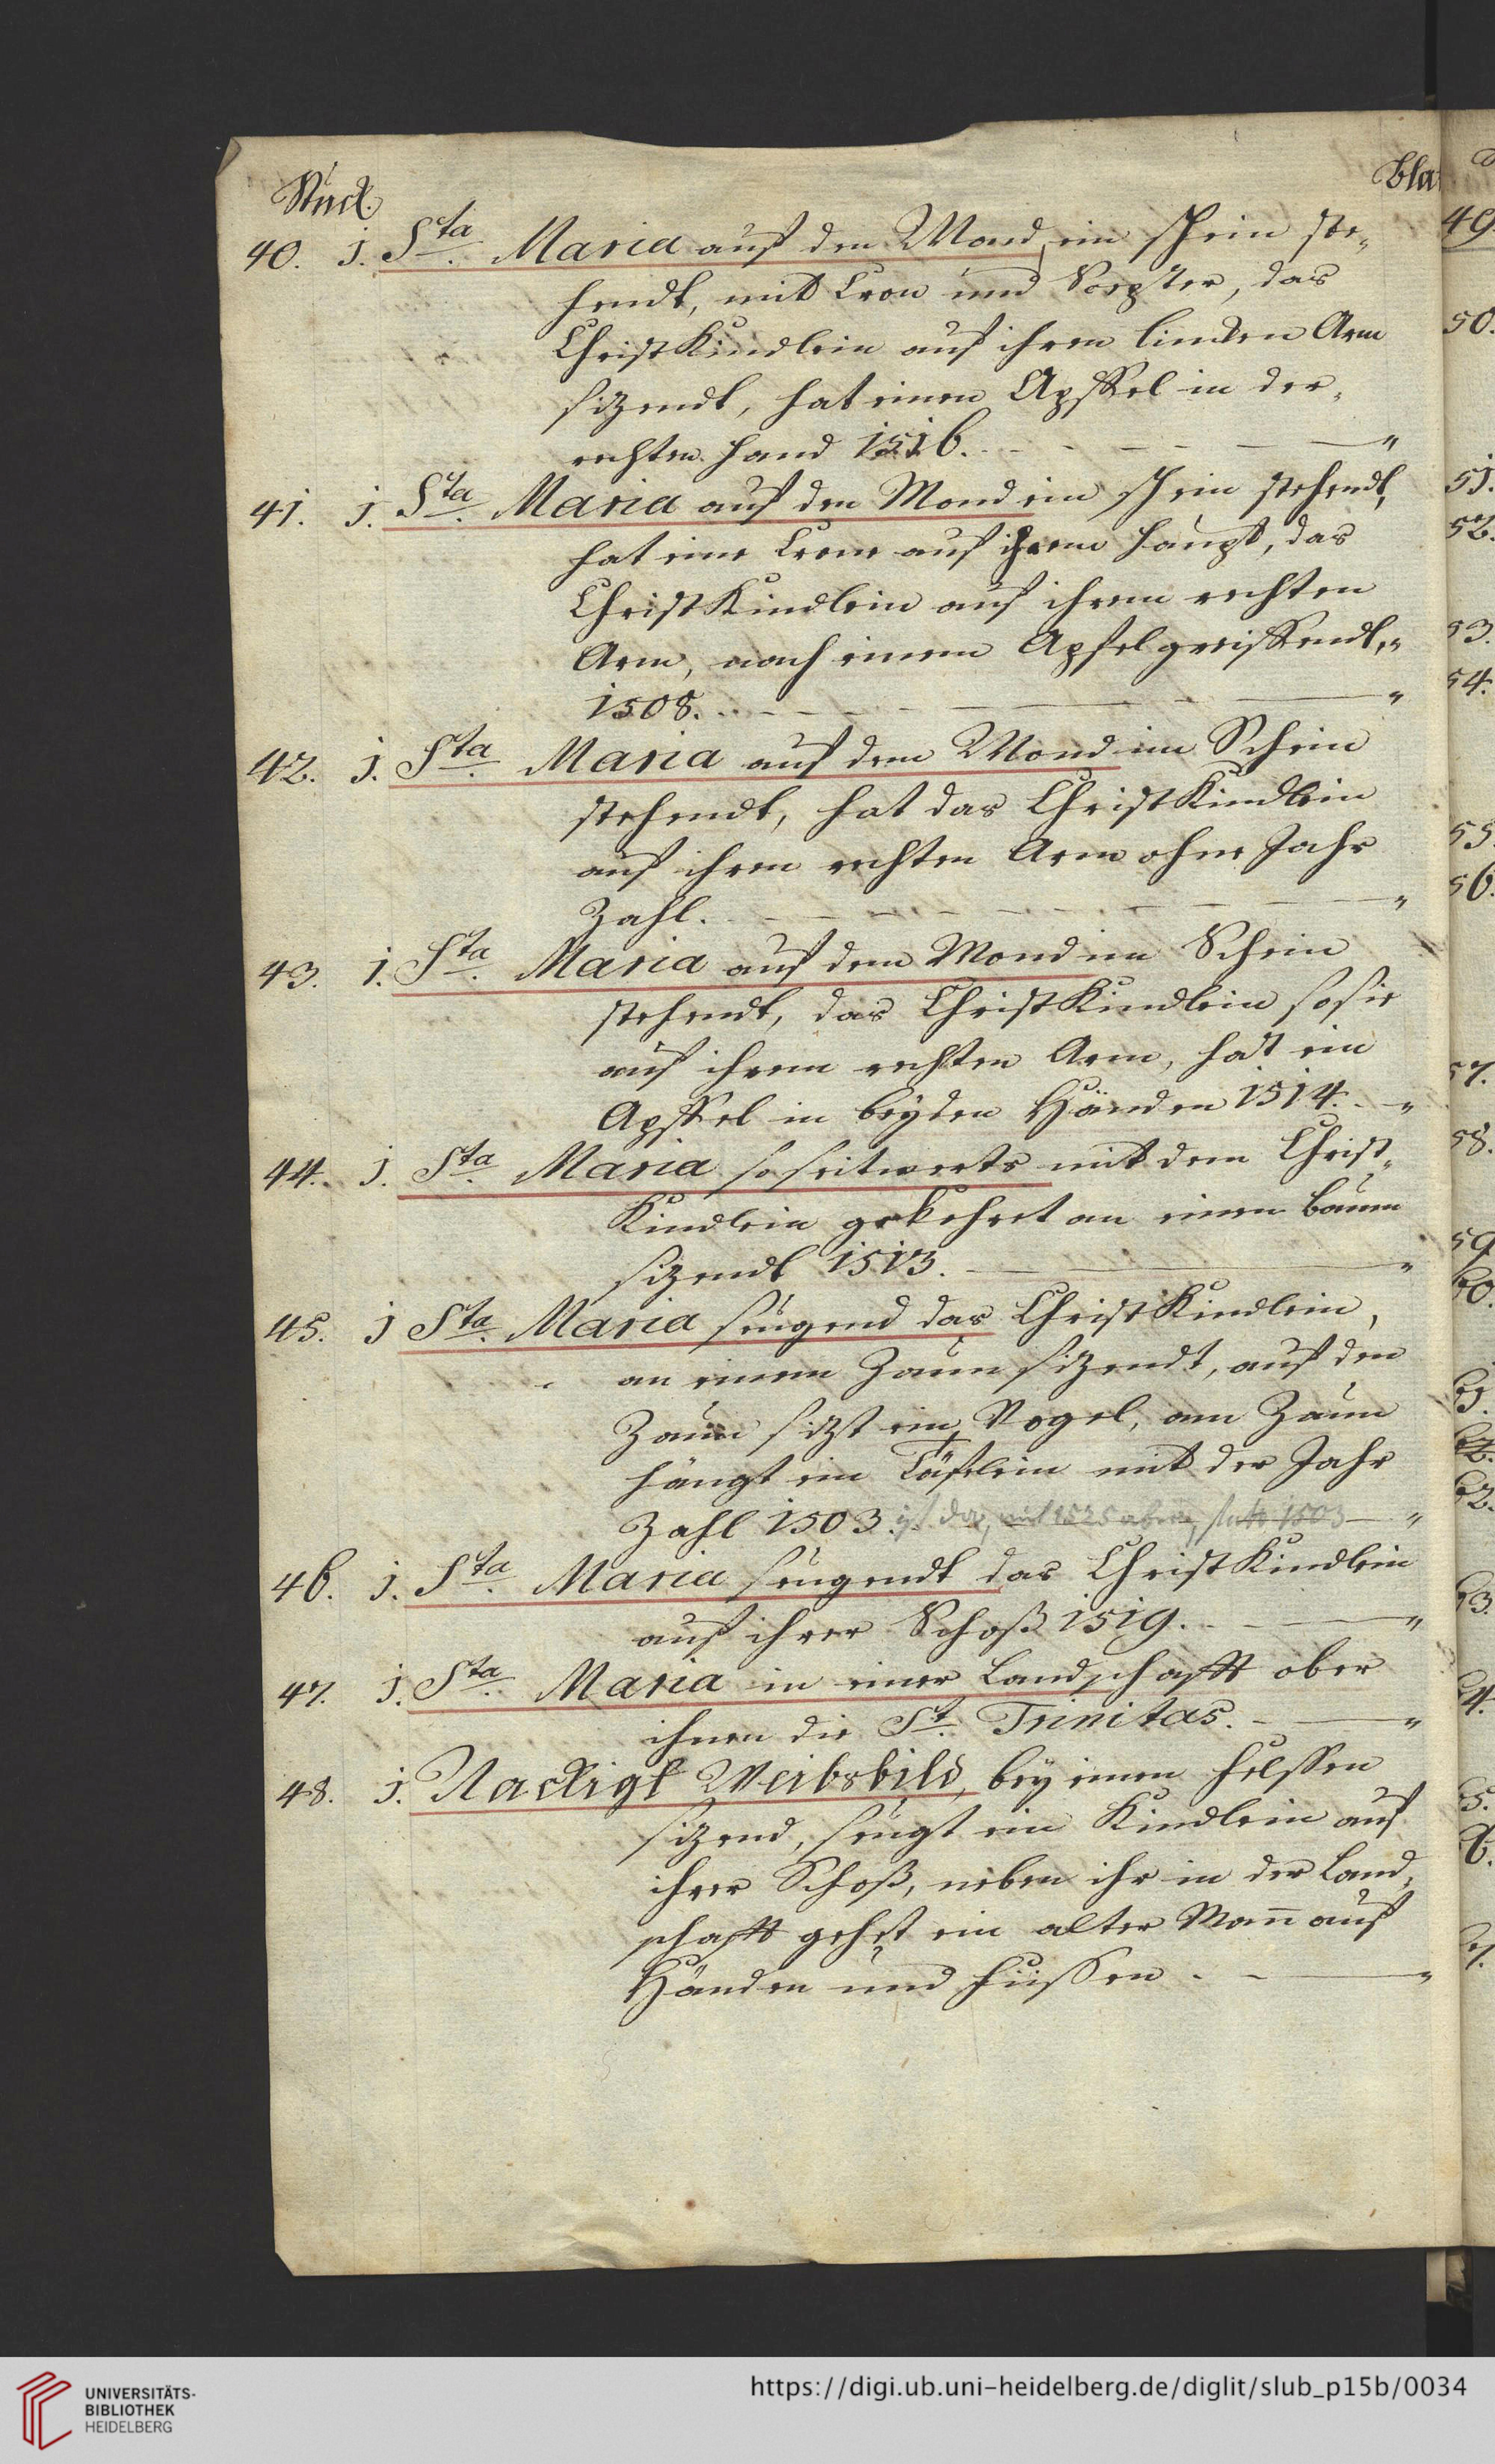 Stuck.
Bla
40. 1. Sta. Maria auf den Mond, im schein ste-
hendt, mit Cron und Scepter, das
Christ Kindlein auf ihren lincken Arm
sizendt, hat einen Apffel in der
rechten hand 1516.
41. 1. Sta. Maria auf den Mond im schein stehendt,
hat eine Crone auf ihrem haupt, das
Christ Kindlein auf ihrem rechten
Arm, nach einem Apfel greiffendt,
1508.
42. 1. Sta. Maria auf dem Mond im Schein
stehendt, hat das Christ Kindlein
auf ihren rechten Arm ohne Jahr
Zahl.
43. 1. Sta. Maria auf dem Mond im Schein
stehendt, das Christ Kindlein so sie
auf ihrem rechten Arm, hat ein
Apffel in beyden Händen 1514.
44. 1. Sta. Maria so seitwerts mit dem Christ-
Kindlein gekehret an einen baum
sizendt 1513.
45. 1 Sta. Maria seugend das Christ Kindlein,
an einem Zaun sizendt, auf den
Zaun sizt ein Vogel, am Zaun
hängt ein Täfelein mit der Jahr
Zahl 1503. ist da, mit 1525 oben, statt 1503
46. 1. Sta. Maria seugendt das Christ Kindlein
auf ihrer Schoß 1519.
47. 1. Sta. Maria in einer Landschafft ober
ihnen die St. Trinitas.
48. 1. Nackigt Weibsbild, bey einen felssen
sizend, seugt ein Kindlein auf
ihrer Schoß, neben ihr in der Land-
schafft gehet ein alter Mann auf
Händen und füssen.
49.
50.
51.
52.
53.
54.
55.
56.
57.
58.
59.
60.
61.
62.
63.
64.
65.
UNIVERSITÄTS-
BIBLIOTHEK
HEIDELBERG
https://digi.ub.uni-heidelberg.de/diglit/slub_p15b/0034